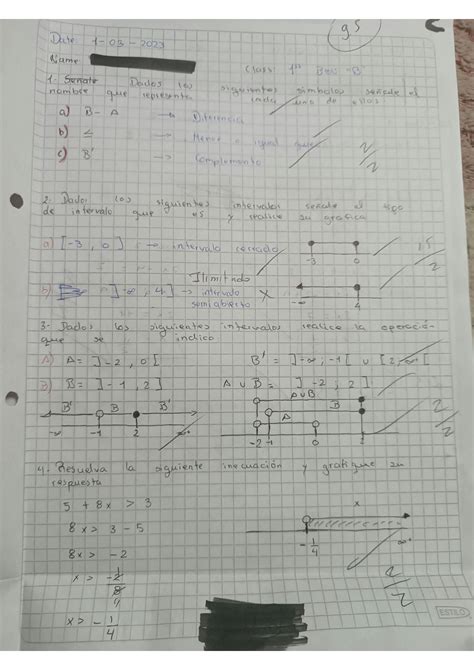 95
Date: 1-03-2023
Name:
Class: 1ro BGU "B"
1. Señale Dados los siguientes símbolos señale el
nombre que representa cada uno de ellos:
a) B-A → Diferencia
b) ≤ → Menor o igual que
c) B' → Complemento
2/2
2. Dados los siguientes intervalos señale el tipo
de intervalo que es y realice su grafica
a) [-3, 0] → intervalo cerrado
-3 0
1,5/2
Ilimitado
b) ]-∞, 4] → intervalo
semiabierto x
-∞ 4
3. Dados los siguientes intervalos realice la operación
que se indica
A) A= ]-2, 0[ B' = ]-∞, -1[ ∪ [2,
B) B= ]-1, 2] A ∪ B = ]-2, 2]
B' B B'
-∞ -1 2
A∪B
B
A
-2 -1 0 2
4. Resuelva la siguiente inecuación y grafique su
respuesta
5 + 8x > 3
8x > 3 - 5
8x > -2
x > -2/8
4
x > -1/4
x
-1/4 ∞+
2/2
ESTILO